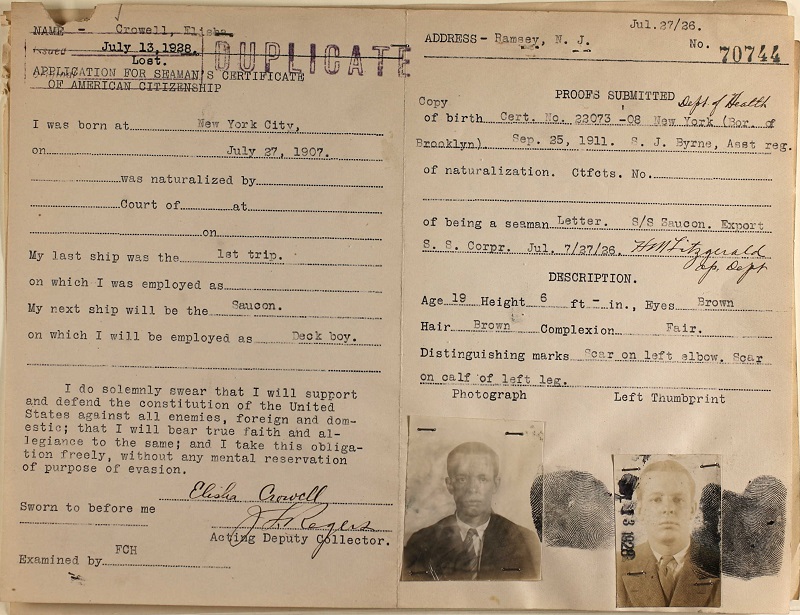 NAME - Crowell, Elisha.
Issued July 13, 1928.
Lost.
DUPLICATE
APPLICATION FOR SEAMAN'S CERTIFICATE
OF AMERICAN CITIZENSHIP
I was born at New York City,
on July 27, 1907.
was naturalized by
Court of at
on
My last ship was the 1st trip.
on which I was employed as
My next ship will be the Saucon.
on which I will be employed as Deck boy.
I do solemnly swear that I will support
and defend the constitution of the United
States against all enemies, foreign and dom-
estic; that I will bear true faith and al-
legiance to the same; and I take this obliga-
tion freely, without any mental reservation
of purpose of evasion.
Elisha Crowell
Sworn to before me
Rogers
Acting Deputy Collector.
Examined by FCH
Jul.27/26.
ADDRESS - Ramsey, N. J.
No. 70744
PROOFS SUBMITTED Dept of Health
Copy
of birth Cert. No. 22073 -08 New York (Bor. of
Brooklyn) Sep. 25, 1911. S. J. Byrne, Asst reg.
of naturalization. Ctfcts. No.
of being a seaman Letter. S/S Saucon. Export
S. S. Corpr. Jul. 7/27/26. HM Fitzgerald
Op. Dept
DESCRIPTION.
Age 19 Height 6 ft - in., Eyes Brown
Hair Brown Complexion Fair.
Distinguishing marks Scar on left elbow. Scar
on calf of left leg.
Photograph Left Thumbprint
13 1928